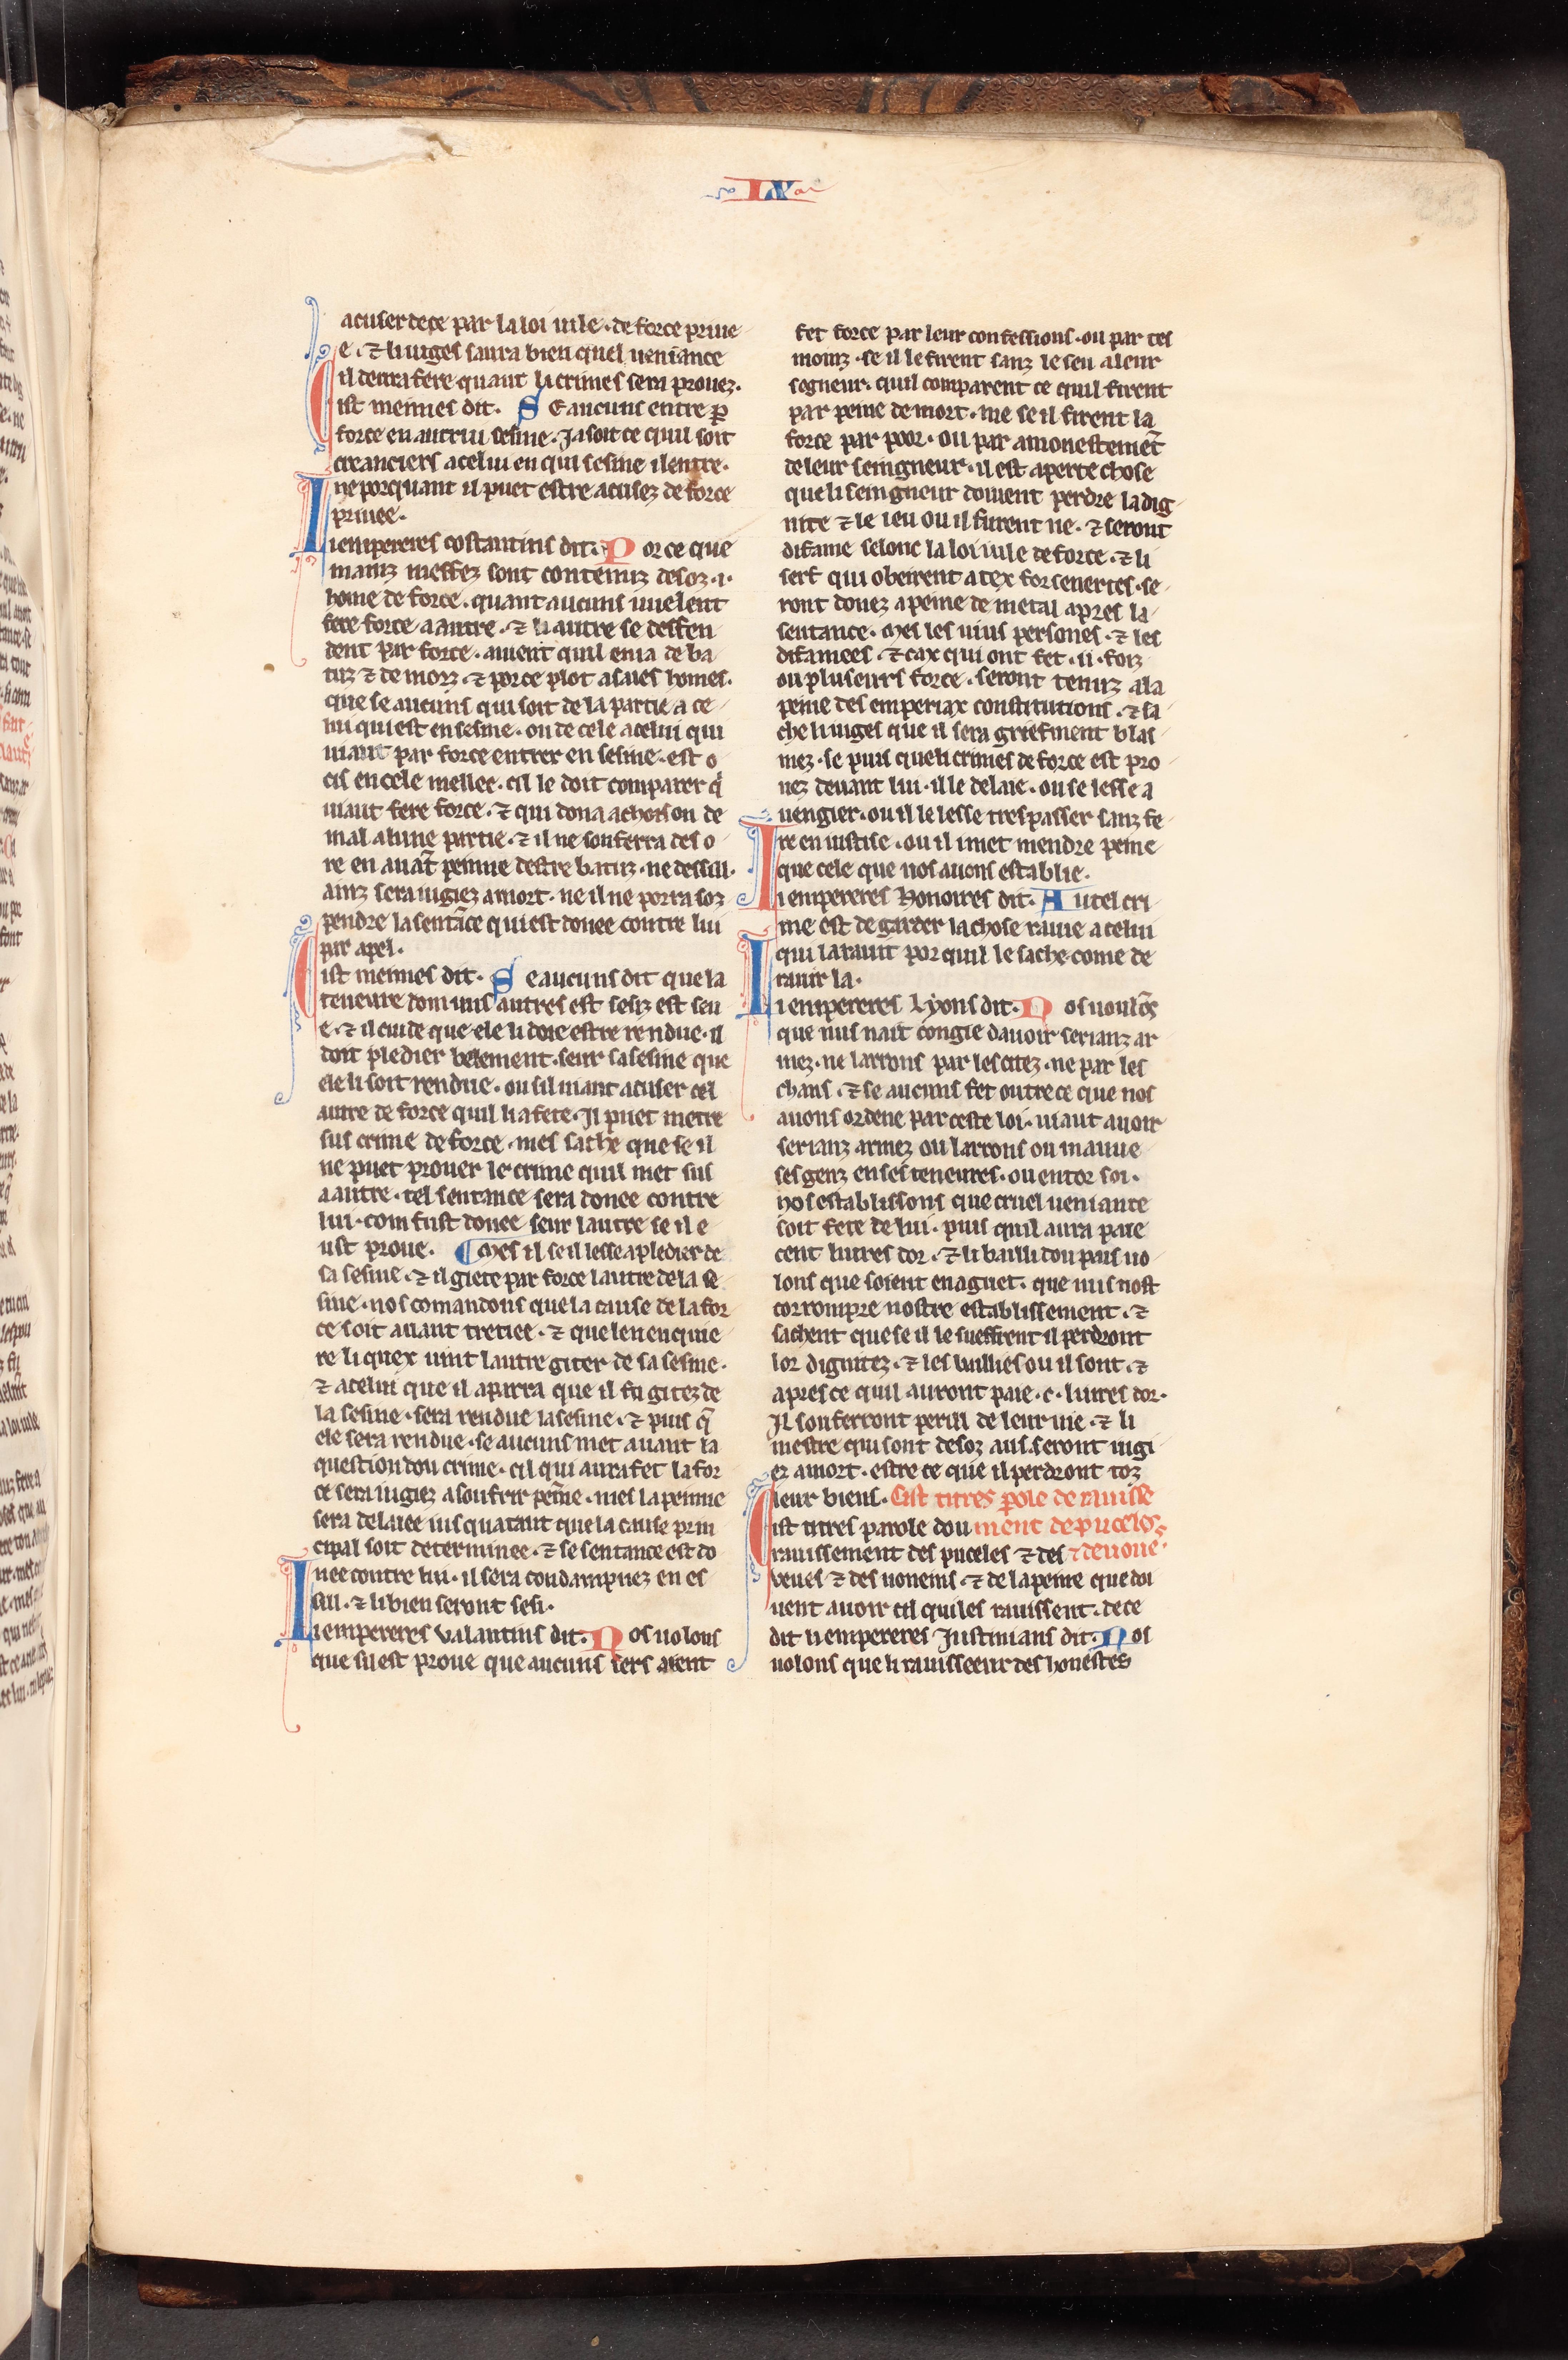 IX
acuser de ce par la loi iule · de force priue
e · ⁊ li iuges saura bien quel ueniance
il deura fere quant li crimes sera prouez ·
Cist meimes dit · Se aucuns entre ꝑ
force en autrui sesine · Ja soit ce quil soit
creanciers a celui en qui sesine il entre ·
ne porquant il puet estre acusez de force
priuee ·
Li empereres costantins dit · Por ce que
mainz meffez sont contenuz desoz · i ·
home de force · quant aucuns uuelent
fere force a autre · ⁊ li autre se deffen
dent par force · auient quil en i a de ba
tuz ⁊ de morz · ⁊ por ce plot a sues homes ·
que se aucuns qui soit de la partie a ce
lui qui est en sesine · ou de cele a celui qui
uiaut par force entrer en sesine · est o
cis en cele mellee · cil le doit comparer q̇
uiaut fere force · ⁊ qui dona achoison de
mal a lune partie · ⁊ il ne souferra des o
re en auāt peinne destre batuz · ne dessill ·
ainz sera iugiez a mort · ne il ne porra soz
pendre la sentāce qui est donee contre lui
par apel ·
Cist meimes dit · Se aucuns dit que la
teneure dom uns autres est sesiz est seu
e · ⁊ il cuide que ele li doie estre rendue · il
doit pledier belement · seur sa sesine que
ele li soit rendue · ou sil uiaut acuser cel
autre de force quil li a fete · Il puet metre
sus crime de force · mes sache que se il
ne puet prouer le crime quil met sus
a autre · tel sentance sera donee contre
lui · com fust donee seur lautre se il e
ust proue · ¶ Mes il se il lesse a pledier de
sa sesine · ⁊ il giete par force lautre de la se
sine · nos comandons que la cause de la for
ce soit auant tretiee · ⁊ que len enquie
re li quex uint lautre giter de sa sesine ·
⁊ a celui que il aparra que il fu gitez de
la sesine · sera rendue la sesine · ⁊ puis q̄
ele sera rendue · se aucuns met auant la
question dou crime · cil qui aura fet la for
ce sera iugiez a soufrir peīne · mes la peinne
sera delaiee iusqua tant que la cause prin
cipal soit determinee · ⁊ se sentance est do
nee contre lui · il sera condampnez en es
sill · ⁊ li bien seront sesi ·
Li empereres Valantins dit · Nos uolons
que sil est proue que aucuns sers aient
fet force par leur confessions · ou par tes
moinz · se il le firent sanz le seu a leur
segneur · quil comparent ce quil firent
par peine de mort · me se il firent la
force par poor · ou par amonestemēt
de leur seingneur · il est aperte chose
que li seingneur doiuent perdre la dig
nite ⁊ le leu ou il furent ne · ⁊ seront
difame selonc la loi iule de force · ⁊ li
serf qui obeirent a tex forseneries · se
ront donez a peine de metal apres la
sentance · Mes les uius persones · ⁊ les
difamees · ⁊ cax qui ont fet · ii · foiz
ou pluseurs force · seront tenuz a la
peine des emperiax constitutions · ⁊ sa
che li iuges que il sera griefment blas
mez · se puis que li crimes de force est pro
uez deuant lui · il le delaie · ou se lesse a
uengier · ou il le lesse trespasser sanz fe
re en iustise · ou il i met mendre peine
que cele que nos auons establie ·
Li empereres Honoires dit · Autel cri
me est de garder la chose rauie a celui
qui la rauit por quil le sache come de
rauir la ·
Li empereres Lyons dit · Nos uoulōs
que nus nait congie dauoir serianz ar
mez · ne larrons par les citez · ne par les
chans · ⁊ se aucuns fet outre ce que nos
auons ordene par ceste loi · uiaut auoir
serianz armez ou larrons ou mauue
ses genz en ses teneures · ou entor soi ·
nos establissons que cruel ueniance
soit fete de lui · puis quil aura paie
cent liures dor · ⁊ li bailli dou pais uo
lons que soient en aguet · que nus nost
corrompre nostre establissement · ⁊
sachent que se il le sueffrent il perdront
lor dignitez · ⁊ les baillies ou il sont · ⁊
apres ce quil auront paie · c · liures dor ·
Il souferront perill de leur uie · ⁊ li
mestre qui sont desoz aus · seront iugi
ez a mort · estre ce que il perdront toz
leur biens · Cist titres ꝑole de rauisse
Cist titres parole dou ment de puceles
rauissement des puceles ⁊ des ⁊ de uoue ·
veues ⁊ des nonneins · ⁊ de la peine que doi
uent auoir cil qui les rauissent · de ce
dit li empereres Justinians dit · Nos
uolons que li rauisseeur des honestes